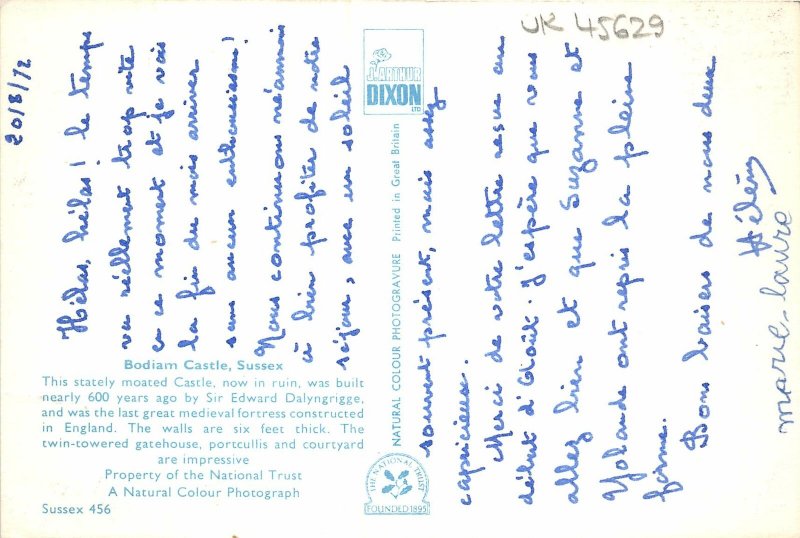 UK 45629
20/8/72
Hélas, hélas! le temps
va réellement trop vite
en ce moment et je vois
la fin du mois arriver
sans aucun enthousiasme!
Nous continuons néanmoins
à bien profiter de notre
séjour, avec un soleil
souvent présent, mais assez
capricieux.
Merci de votre lettre reçue au
début d'Août. J'espère que vous
allez bien et que Suzanne et
Yolande ont repris la pleine
forme.
Bons baisers de nous deux
Hélène
marie-laure
J. ARTHUR
DIXON
LTD
NATURAL COLOUR PHOTOGRAVURE Printed in Great Britain
Bodiam Castle, Sussex
This stately moated Castle, now in ruin, was built
nearly 600 years ago by Sir Edward Dalyngrigge,
and was the last great medieval fortress constructed
in England. The walls are six feet thick. The
twin-towered gatehouse, portcullis and courtyard
are impressive
Property of the National Trust
A Natural Colour Photograph
Sussex 456
THE NATIONAL TRUST
FOUNDED 1895